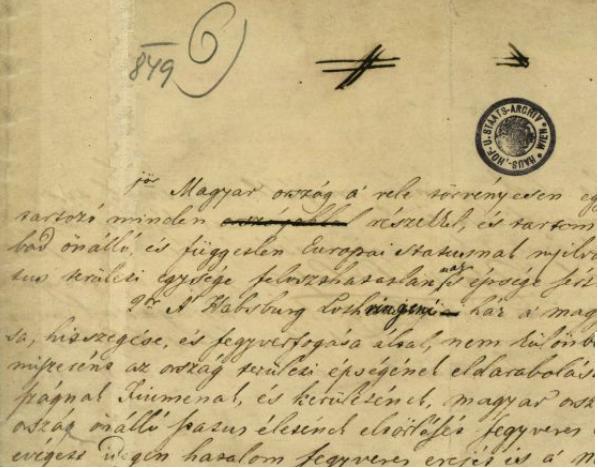 849
6
HAUS-, HOF- U. STAATS-ARCHIV * WIEN *
Magyar ország a' vele törvényesen egy
tartozó minden részekkel, és tartom
bad önálló, és független Europai statusnak nyilv
tus területi egysége feloszthatatlan és épsége sért
2or A Habsburg Lothringeni ház a' mag
sa, hitszegése, és fegyverfogása által, nem különb
miszerént az ország területi épségének eldarabolás
Fiumenak, és kerületének, magyar orsz
ország önálló status életének fegyveres
idegen hatalom fegyveres erejét is a' n